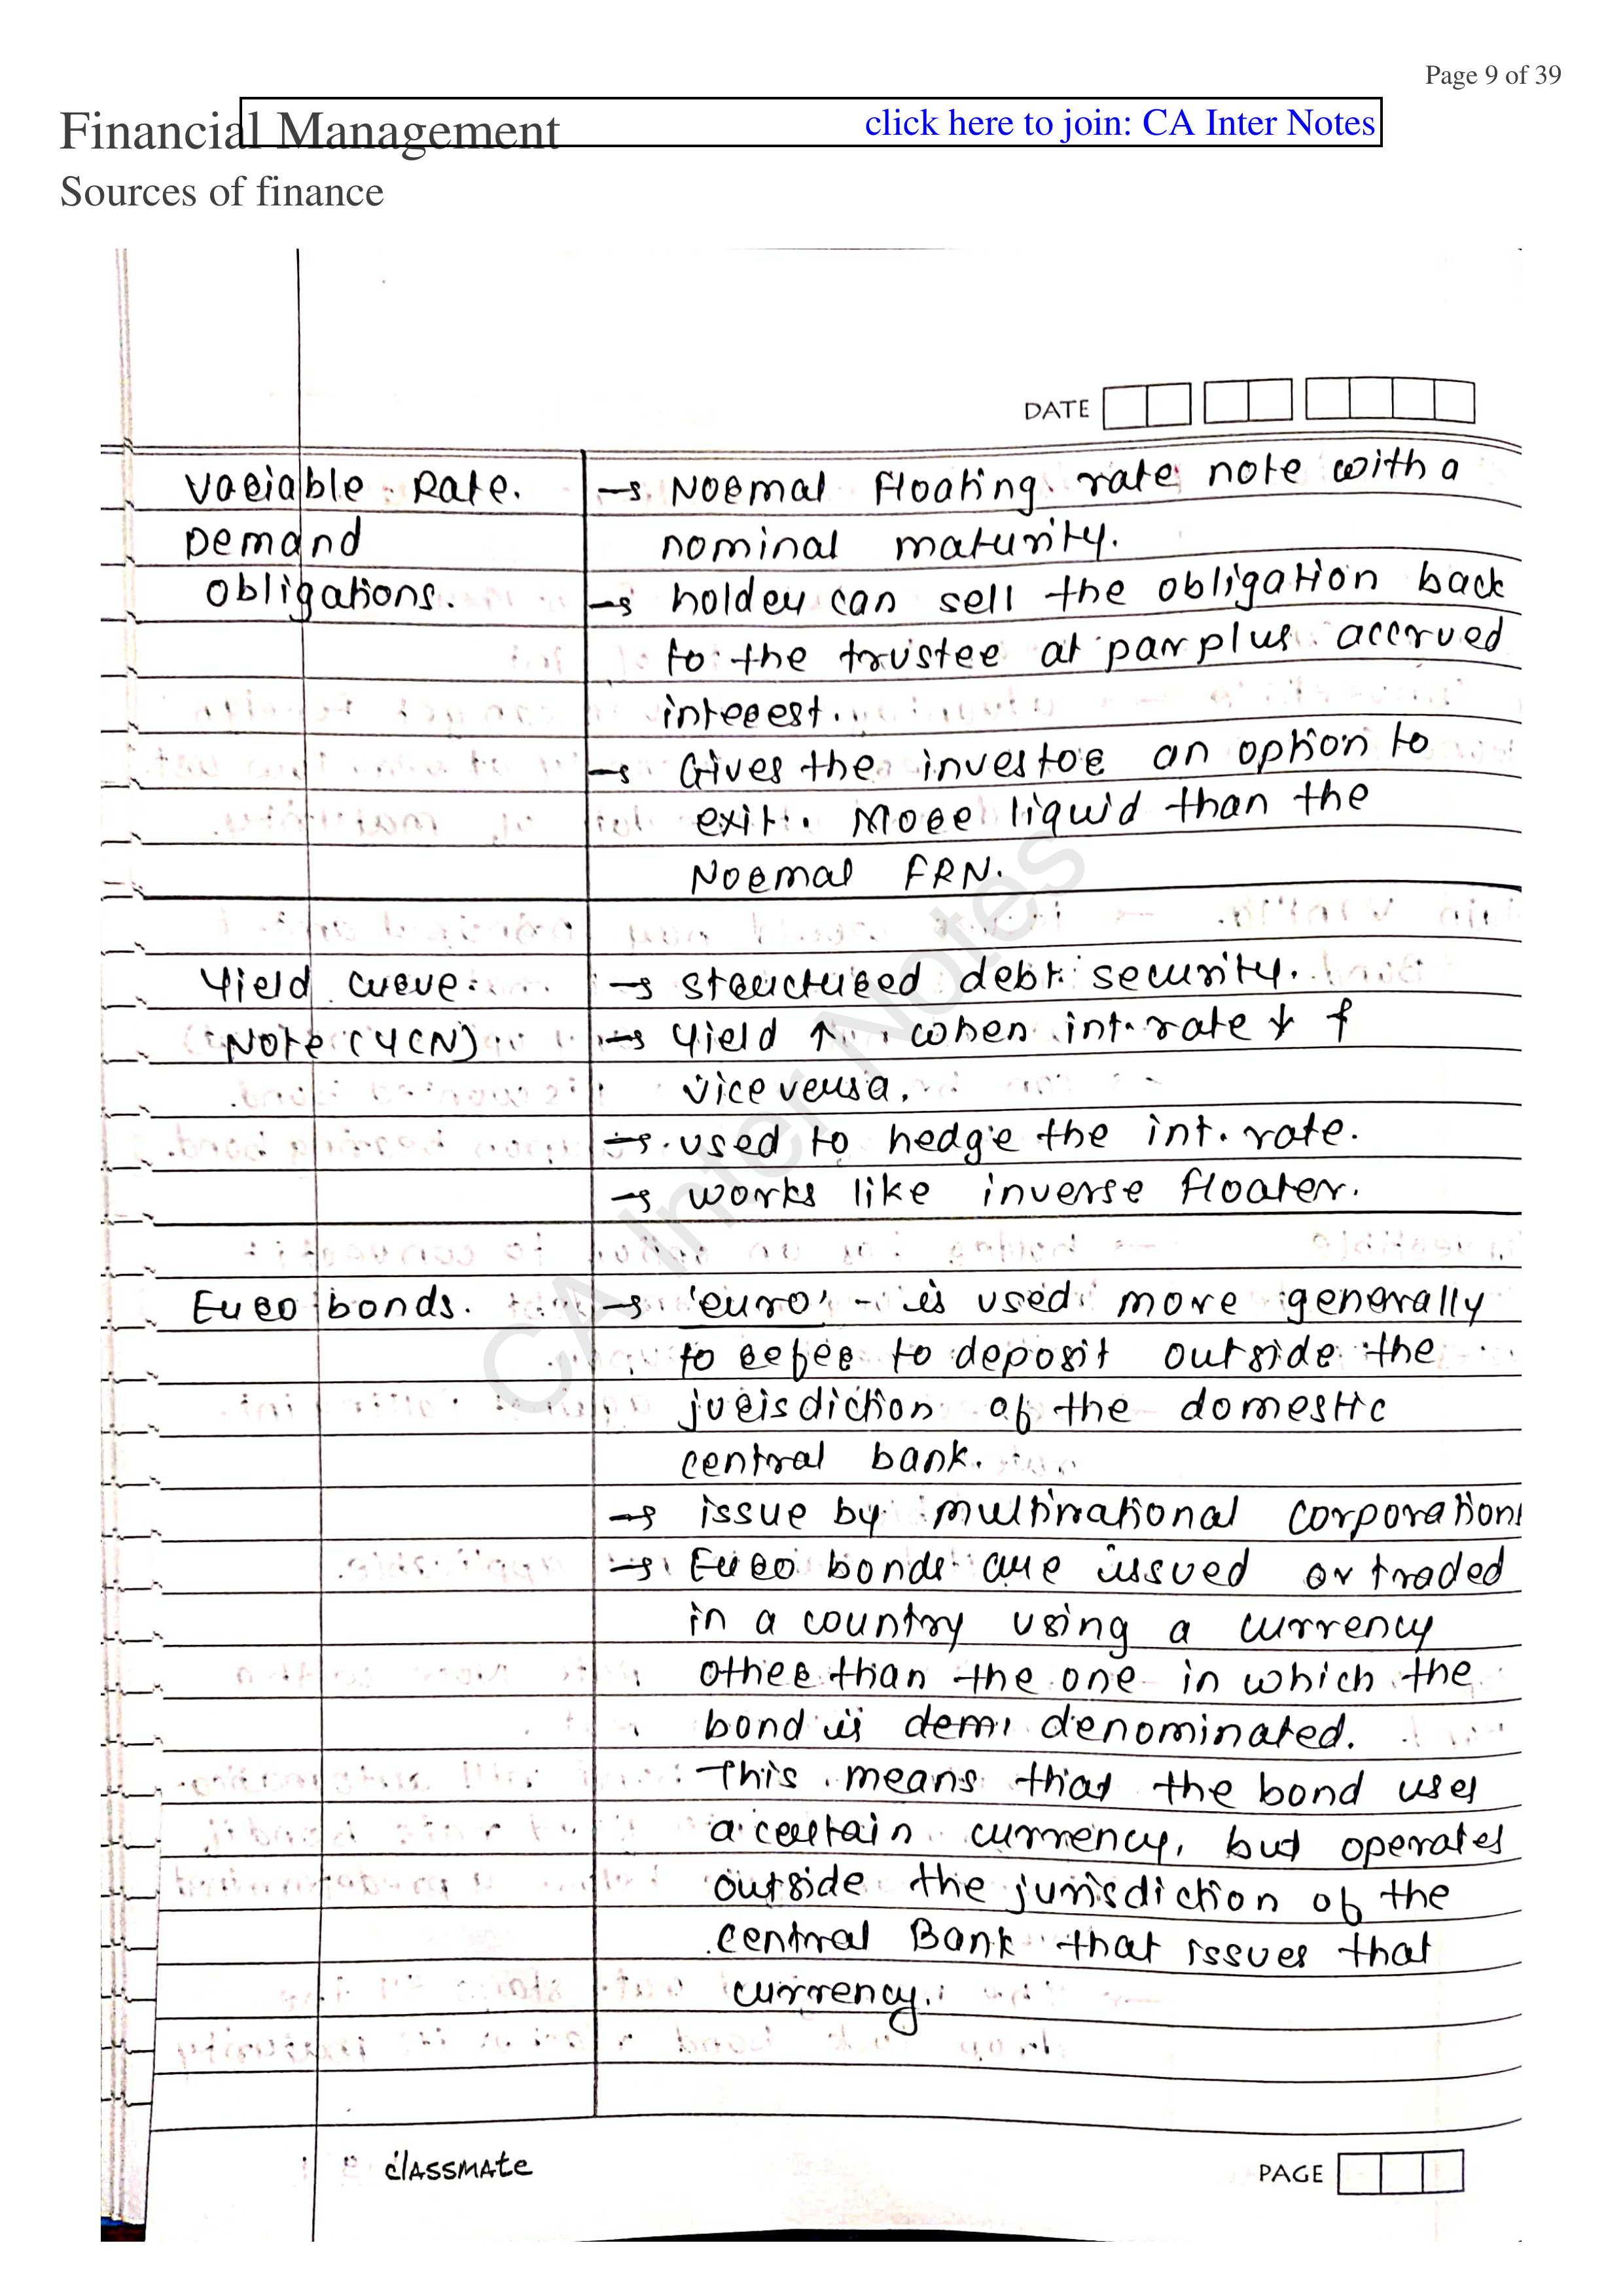 Page 9 of 39
Financial Management
click here to join: CA Inter Notes
Sources of finance
DATE
Variable Rate. → Normal Floating rate note with a
Demand nominal maturity.
Obligations. → holder can sell the obligation back
to the trustee at par plus accrued
interest.
→ Gives the investor an option to
exit. More liquid than the
Normal FRN.
Yield curve → structured debt security.
Note (YCN) → Yield ↑ when int. rate ↓ &
vice versa.
→ used to hedge the int. rate.
→ works like inverse floater.
Euro bonds. → 'euro' - is used more generally
to refer to deposit outside the
jurisdiction of the domestic
central bank.
→ issue by multinational corporations
→ Euro bonds are issued or traded
in a country using a currency
other than the one in which the
bond is demi denominated.
This means that the bond uses
a certain currency, but operates
outside the jurisdiction of the
central Bank that issues that
currency.
CA Inter Notes
classmate
PAGE